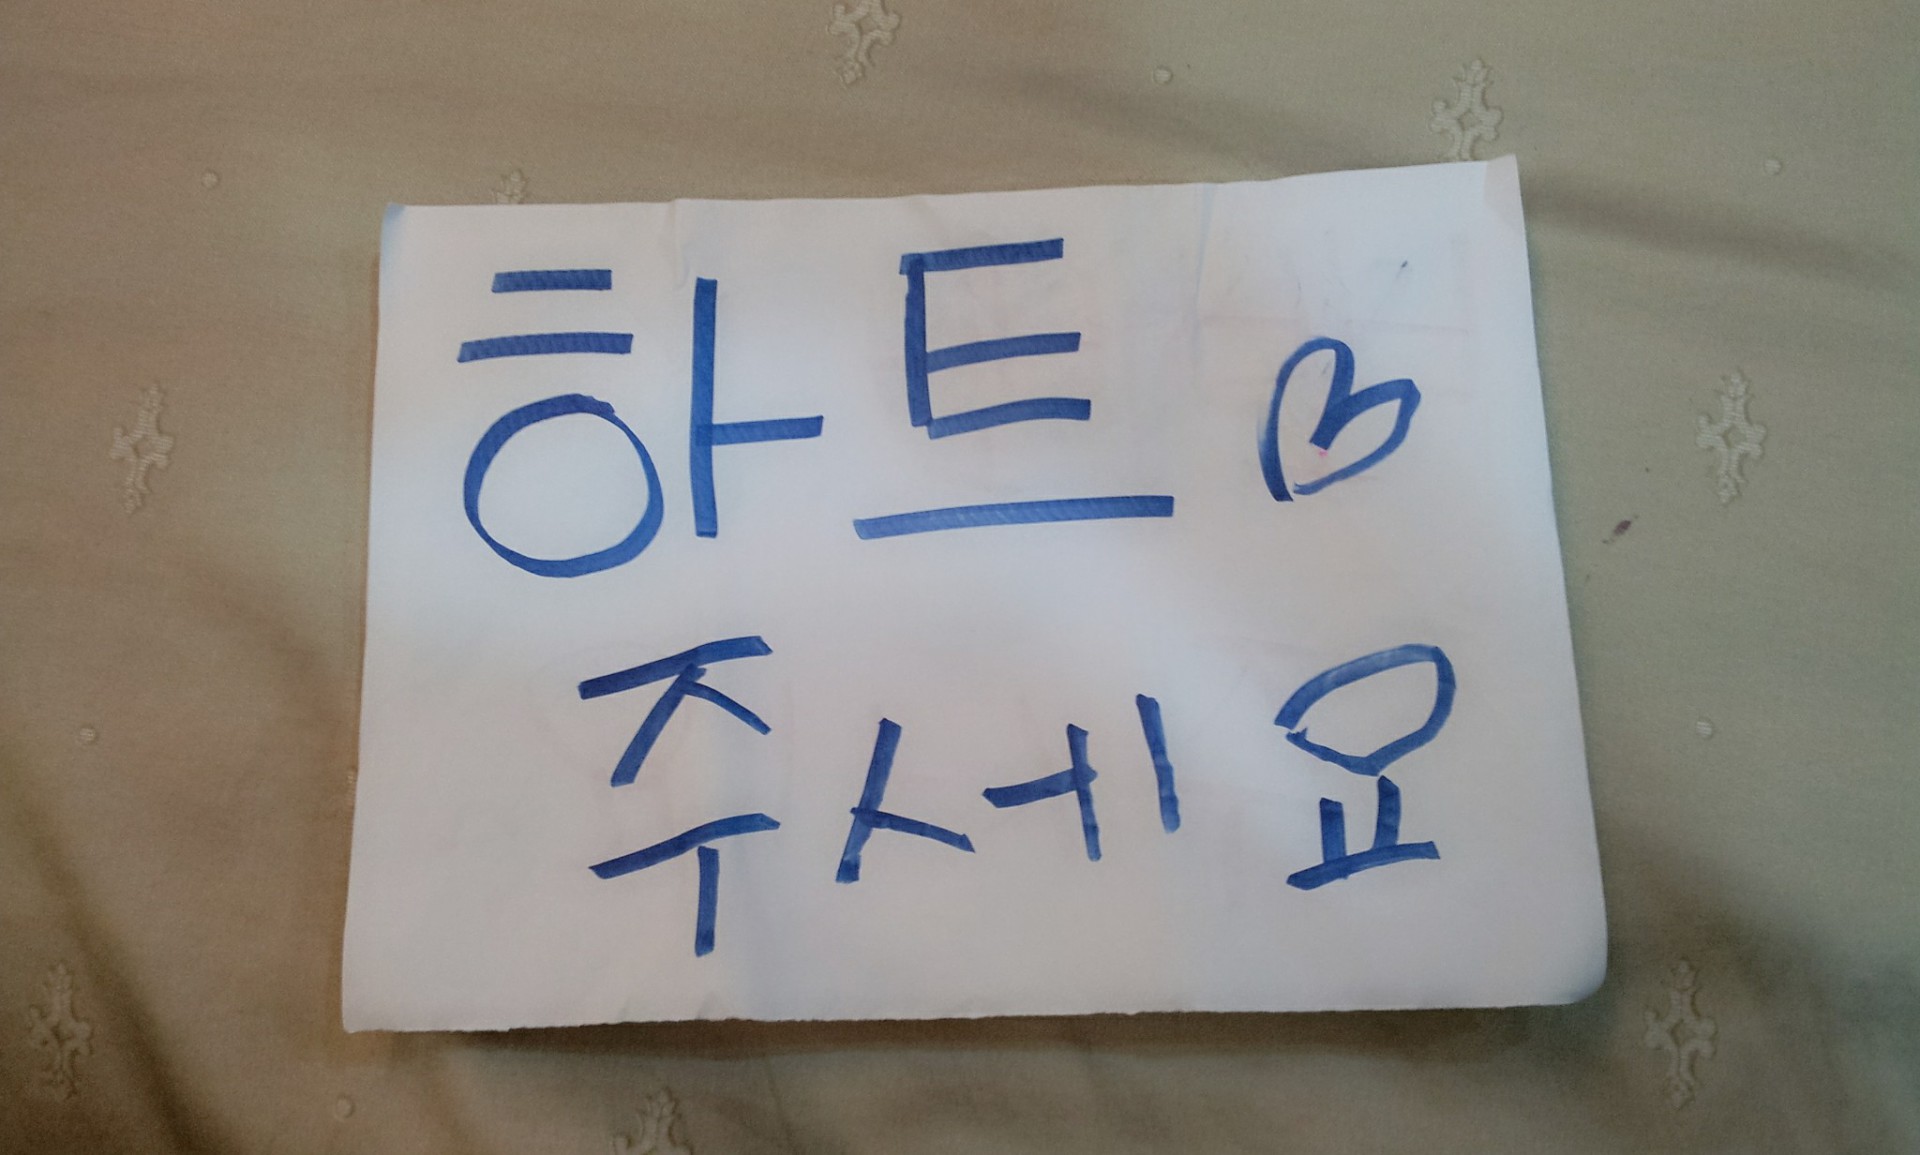 하트 ♡
주세요